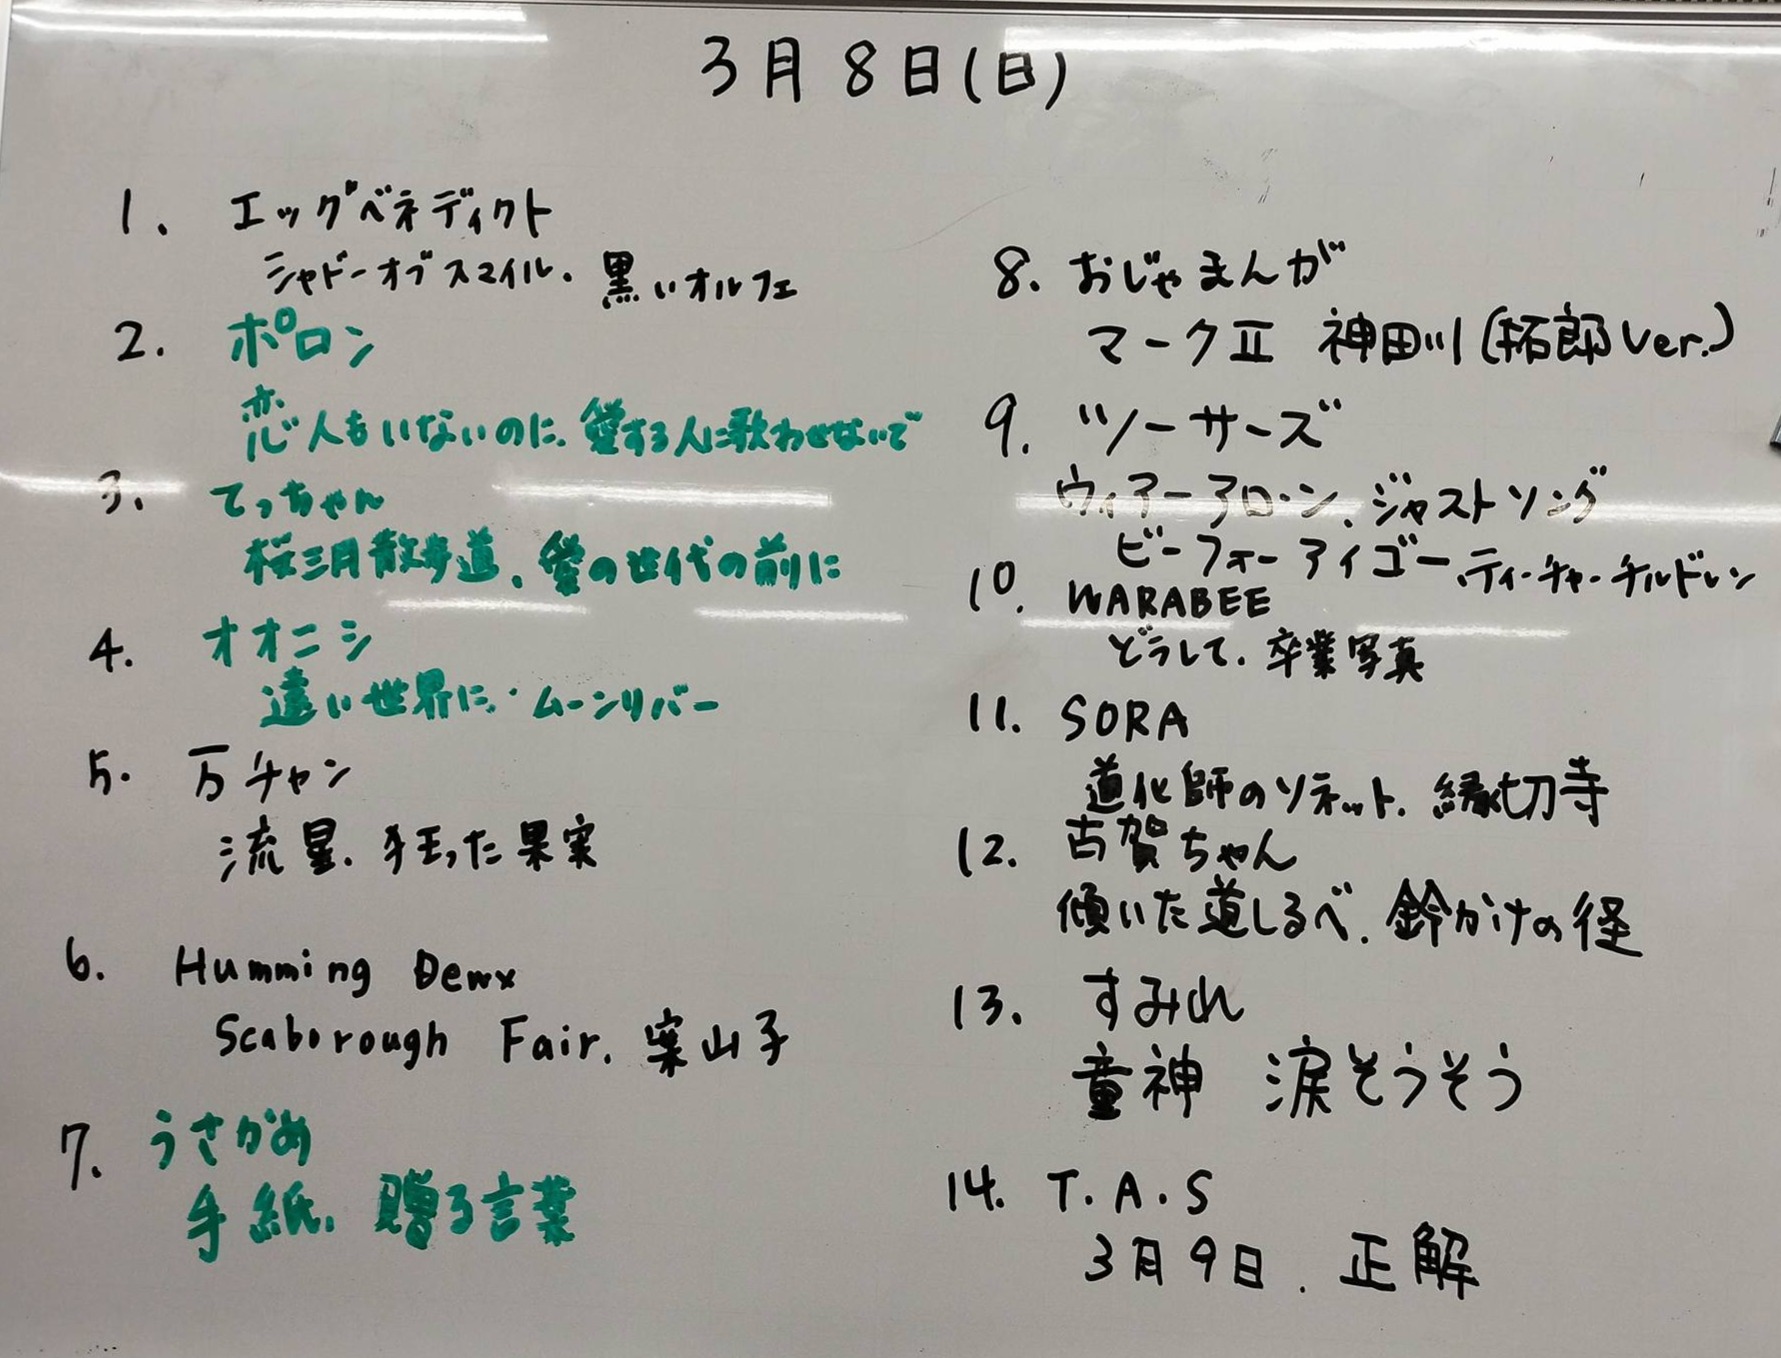 3月8日(日)
1. エッグベネディクト
シャドーオブスマイル. 黒いオルフェ
2. ポロン
恋人もいないのに. 愛する人に歌わせないで
3. てっちゃん
桜三月散歩道. 愛の世代の前に
4. オオニシ
遠い世界に. ムーンリバー
5. 万チャン
流星. 狂った果実
6. Humming Dewx
Scaborough Fair. 案山子
7. うさがめ
手紙. 贈る言葉
8. おじゃまんが
マークⅡ 神田川(拓郎Ver.)
9. ツーサーズ
ウィアーアローン、ジャストソング
ビーフォーアイゴー、ティーチャーチルドレン
10. WARABEE
どうして. 卒業写真
11. SORA
道化師のソネット. 縁切寺
12. 古賀ちゃん
傾いた道しるべ. 鈴かけの径
13. すみれ
童神 涙そうそう
14. T.A.S
3月9日. 正解